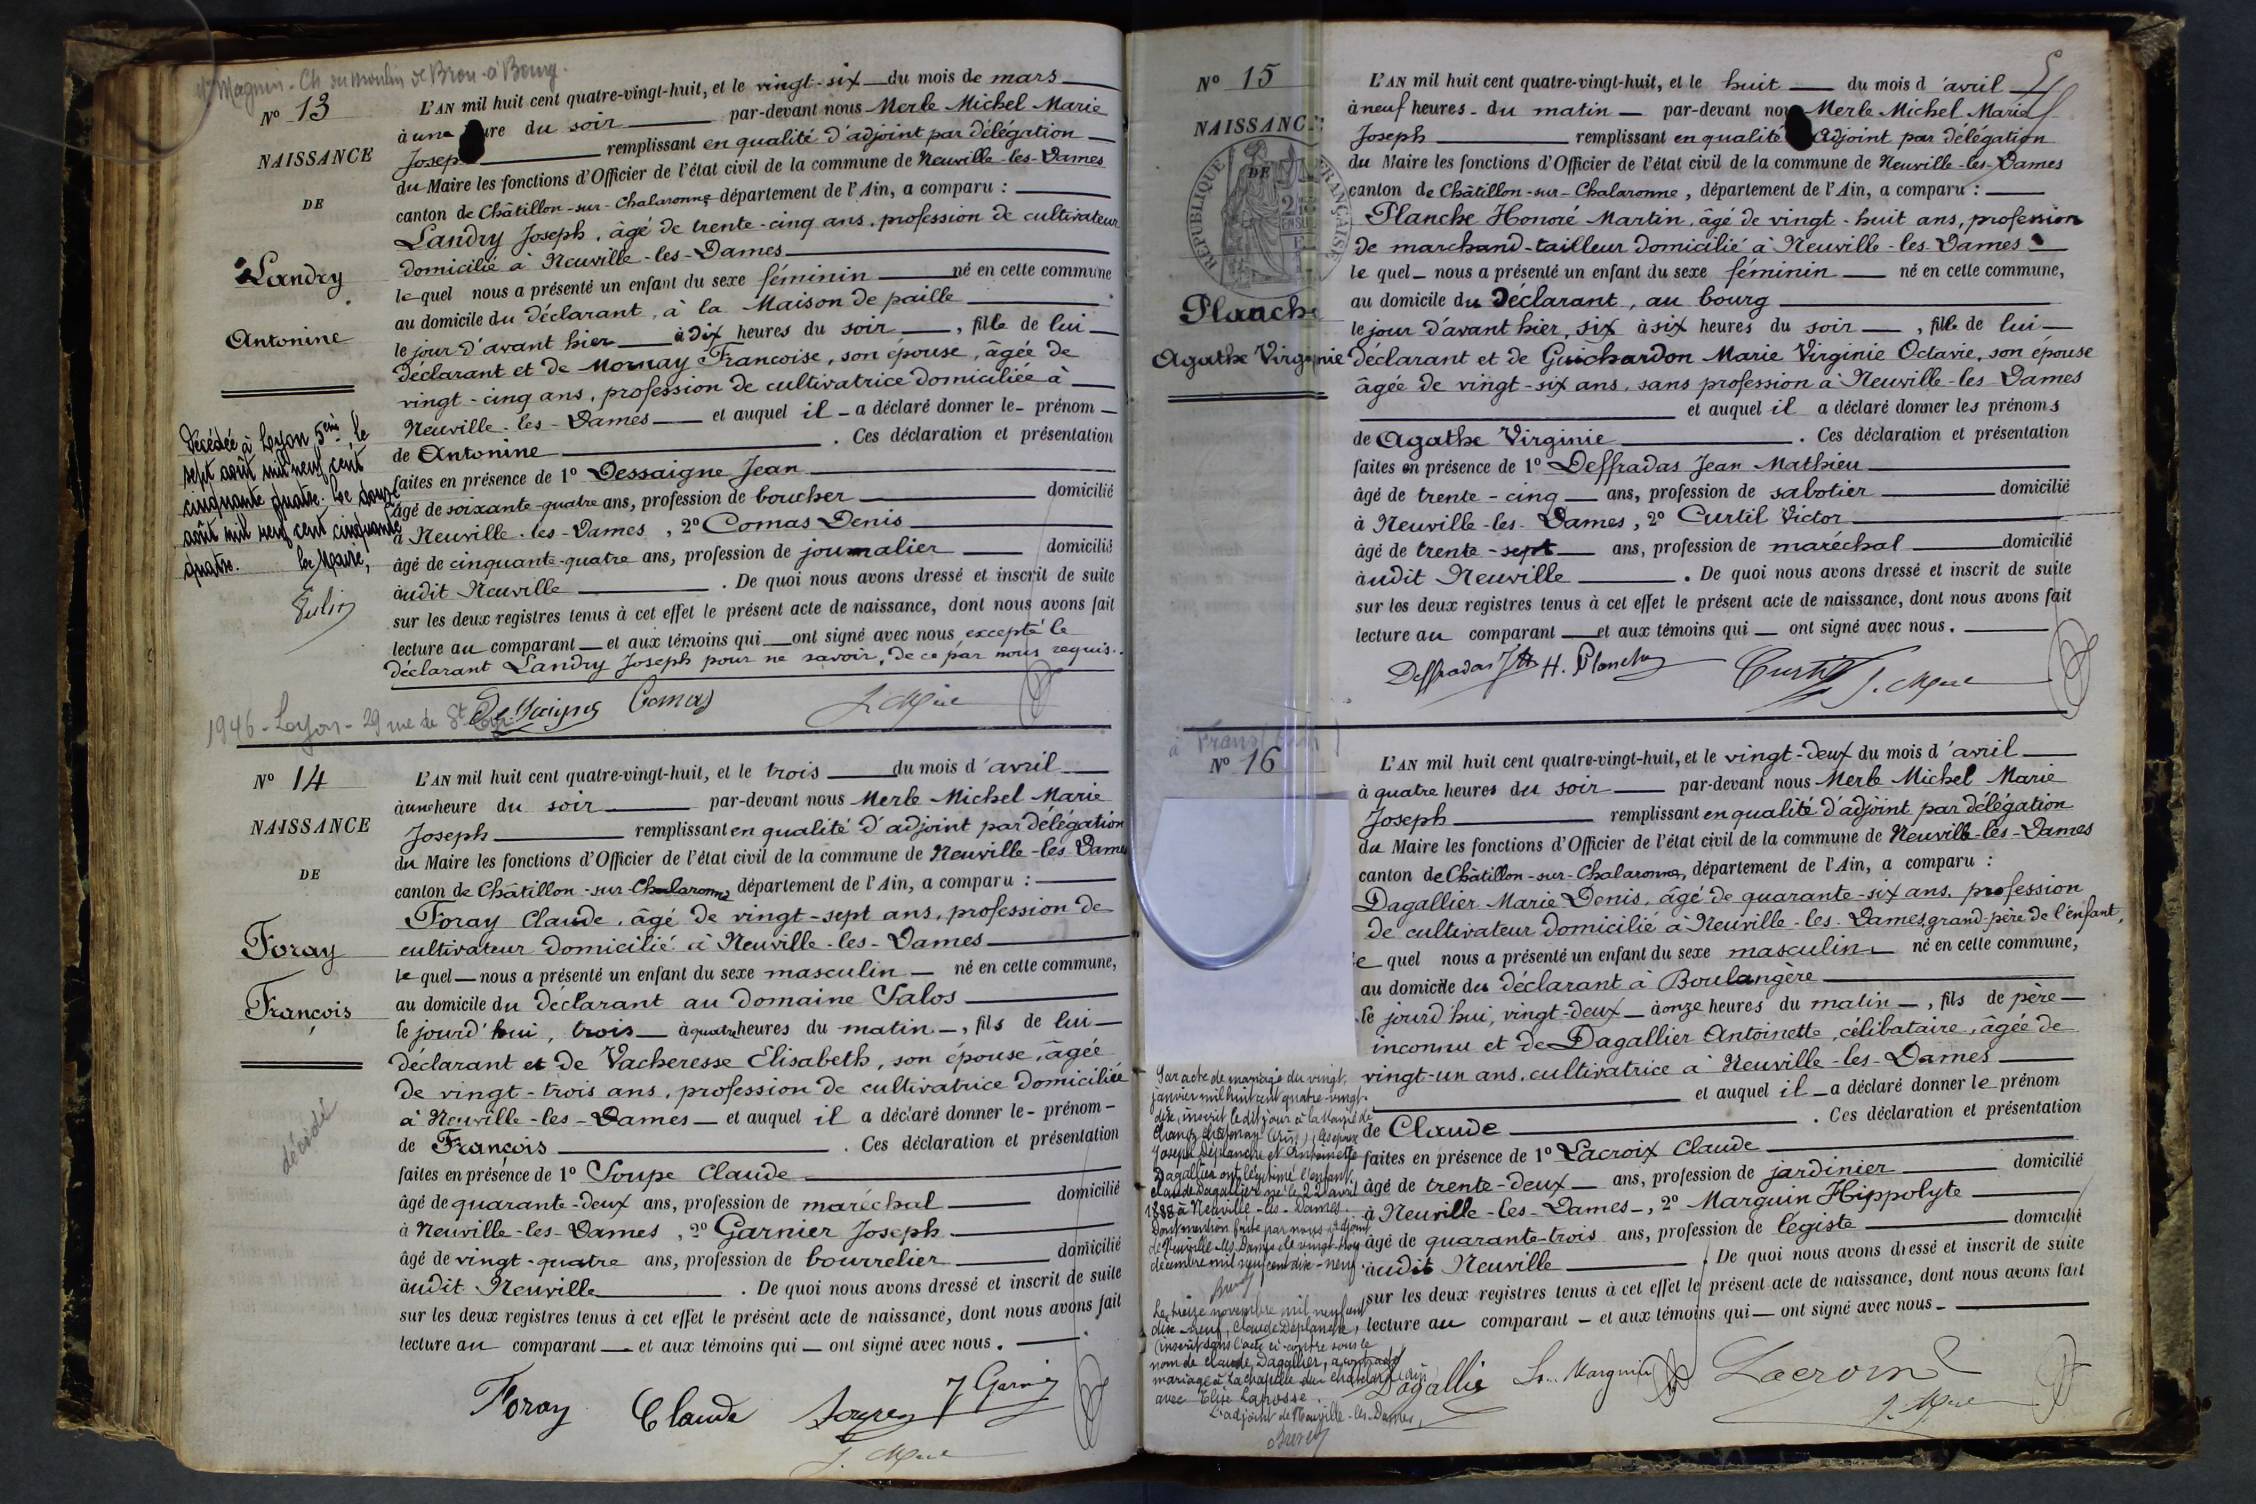 Magnin - Ch. du Moulin de Brou - à Bourg.
N° 13
NAISSANCE
DE
Landry
Antonine
Décédée à Lyon 5eme, le
sept août mil neuf cent
cinquante quatre. Le douze
août mil neuf cent cinquante
quatre. Le Maire,
L'AN mil huit cent quatre-vingt-huit, et le vingt-six du mois de mars
à une heure du soir par-devant nous Merle Michel Marie
Joseph remplissant en qualité d'adjoint par délégation
du Maire les fonctions d'Officier de l'état civil de la commune de Neuville-les-Dames
canton de Châtillon-sur-Chalaronne département de l'Ain, a comparu :
Landry Joseph, âgé de trente-cinq ans, profession de cultivateur
domicilié à Neuville-les-Dames
lequel nous a présenté un enfant du sexe féminin né en cette commune
au domicile du déclarant, à la Maison de paille
le jour d'avant hier à dix heures du soir, fille de lui
déclarant et de Mornay Françoise, son épouse, âgée de
vingt-cinq ans, profession de cultivatrice domiciliée à
Neuville-les-Dames et auquel il a déclaré donner le prénom
de Antonine. Ces déclaration et présentation
faites en présence de 1° Dessaigne Jean
âgé de soixante-quatre ans, profession de boucher domicilié
à Neuville-les-Dames, 2° Comas Denis
âgé de cinquante-quatre ans, profession de journalier domicilié
audit Neuville. De quoi nous avons dressé et inscrit de suite
sur les deux registres tenus à cet effet le présent acte de naissance, dont nous avons fait
lecture au comparant et aux témoins qui ont signé avec nous excepté le
déclarant Landry Joseph pour ne savoir, de ce par nous requis.
Dessaigne Comas J. Merle
1946 - Lyon - 29 rue de St
N° 14
NAISSANCE
DE
Foray
François
décédé
L'AN mil huit cent quatre-vingt-huit, et le trois du mois d'avril
à une heure du soir par-devant nous Merle Michel Marie
Joseph remplissant en qualité d'adjoint par délégation
du Maire les fonctions d'Officier de l'état civil de la commune de Neuville-les-Dames
canton de Châtillon-sur-Chalaronne département de l'Ain, a comparu :
Foray Claude, âgé de vingt-sept ans, profession de
cultivateur domicilié à Neuville-les-Dames
lequel nous a présenté un enfant du sexe masculin né en cette commune,
au domicile du déclarant au domaine Salos
le jourd'hui, trois à quatre heures du matin, fils de lui
déclarant et de Vacheresse Elisabeth, son épouse, âgée
de vingt-trois ans, profession de cultivatrice domiciliée
à Neuville-les-Dames et auquel il a déclaré donner le prénom
de François. Ces déclaration et présentation
faites en présence de 1° Soupe Claude
âgé de quarante-deux ans, profession de maréchal domicilié
à Neuville-les-Dames, 2° Garnier Joseph
âgé de vingt-quatre ans, profession de bourrelier domicilié
audit Neuville. De quoi nous avons dressé et inscrit de suite
sur les deux registres tenus à cet effet le présent acte de naissance, dont nous avons fait
lecture au comparant et aux témoins qui ont signé avec nous.
Foray Claude J Garnier
J. Merle
5
N° 15
NAISSANC
DE
RÉPUBLIQUE FRANÇAISE
Planche
Agathe Virginie
L'AN mil huit cent quatre-vingt-huit, et le huit du mois d'avril
à neuf heures du matin par-devant nous Merle Michel Marie
Joseph remplissant en qualité d'adjoint par délégation
du Maire les fonctions d'Officier de l'état civil de la commune de Neuville-les-Dames
canton de Châtillon-sur-Chalaronne, département de l'Ain, a comparu :
Planche Honoré Martin, âgé de vingt-huit ans, profession
de marchand-tailleur domicilié à Neuville-les-Dames
lequel nous a présenté un enfant du sexe féminin né en cette commune,
au domicile du déclarant, au bourg
le jour d'avant hier, six à six heures du soir, fille de lui
déclarant et de Guichardon Marie Virginie Octavie, son épouse
âgée de vingt-six ans, sans profession à Neuville-les-Dames
et auquel il a déclaré donner les prénoms
de Agathe Virginie. Ces déclaration et présentation
faites en présence de 1° Deffradas Jean Mathieu
âgé de trente-cinq ans, profession de sabotier domicilié
à Neuville-les-Dames, 2° Curtil Victor
âgé de trente-sept ans, profession de maréchal domicilié
audit Neuville. De quoi nous avons dressé et inscrit de suite
sur les deux registres tenus à cet effet le présent acte de naissance, dont nous avons fait
lecture au comparant et aux témoins qui ont signé avec nous.
Deffradas H. Planche Curtil J. Merle
N° 16
Par acte de mariage du vingt
janvier mil huit cent quatre-vingt
dix, inscrit le dit jour à la Mairie de
Chanoz-Châtenay (Ain), les époux
Joseph Déplanche et Antoinette
Dagallier ont légitimé l'enfant
Claude Dagallier né le 22 avril
1888 à Neuville-les-Dames.
Dont mention faite par nous adjoint
de Neuville-les-Dames le vingt
décembre mil neuf cent dix-neuf.
Le treize novembre mil neuf cent
dix-neuf, Claude Déplanche,
inscrit dans l'acte ci-contre sous le
nom de Claude Dagallier, a contracté
mariage à La Chapelle du Chatelard (Ain)
avec Elise Larosse.
L'adjoint de Neuville-les-Dames,
L'AN mil huit cent quatre-vingt-huit, et le vingt-deux du mois d'avril
à quatre heures du soir par-devant nous Merle Michel Marie
Joseph remplissant en qualité d'adjoint par délégation
du Maire les fonctions d'Officier de l'état civil de la commune de Neuville-les-Dames
canton de Châtillon-sur-Chalaronne, département de l'Ain, a comparu :
Dagallier Marie Denis, âgé de quarante-six ans, profession
de cultivateur domicilié à Neuville-les-Dames, grand-père de l'enfant,
quel nous a présenté un enfant du sexe masculin né en cette commune,
au domicile du déclarant à Boulangère
le jourd'hui, vingt-deux à onze heures du matin, fils de père
inconnu et de Dagallier Antoinette, célibataire, âgée de
vingt-un ans, cultivatrice à Neuville-les-Dames
et auquel il a déclaré donner le prénom
de Claude. Ces déclaration et présentation
faites en présence de 1° Lacroix Claude
âgé de trente-deux ans, profession de jardinier domicilié
à Neuville-les-Dames, 2° Marguin Hippolyte
âgé de quarante-trois ans, profession de légiste domicilié
audit Neuville. De quoi nous avons dressé et inscrit de suite
sur les deux registres tenus à cet effet le présent acte de naissance, dont nous avons fait
lecture au comparant et aux témoins qui ont signé avec nous
Dagallier Marguin Lacroix
J. Merle